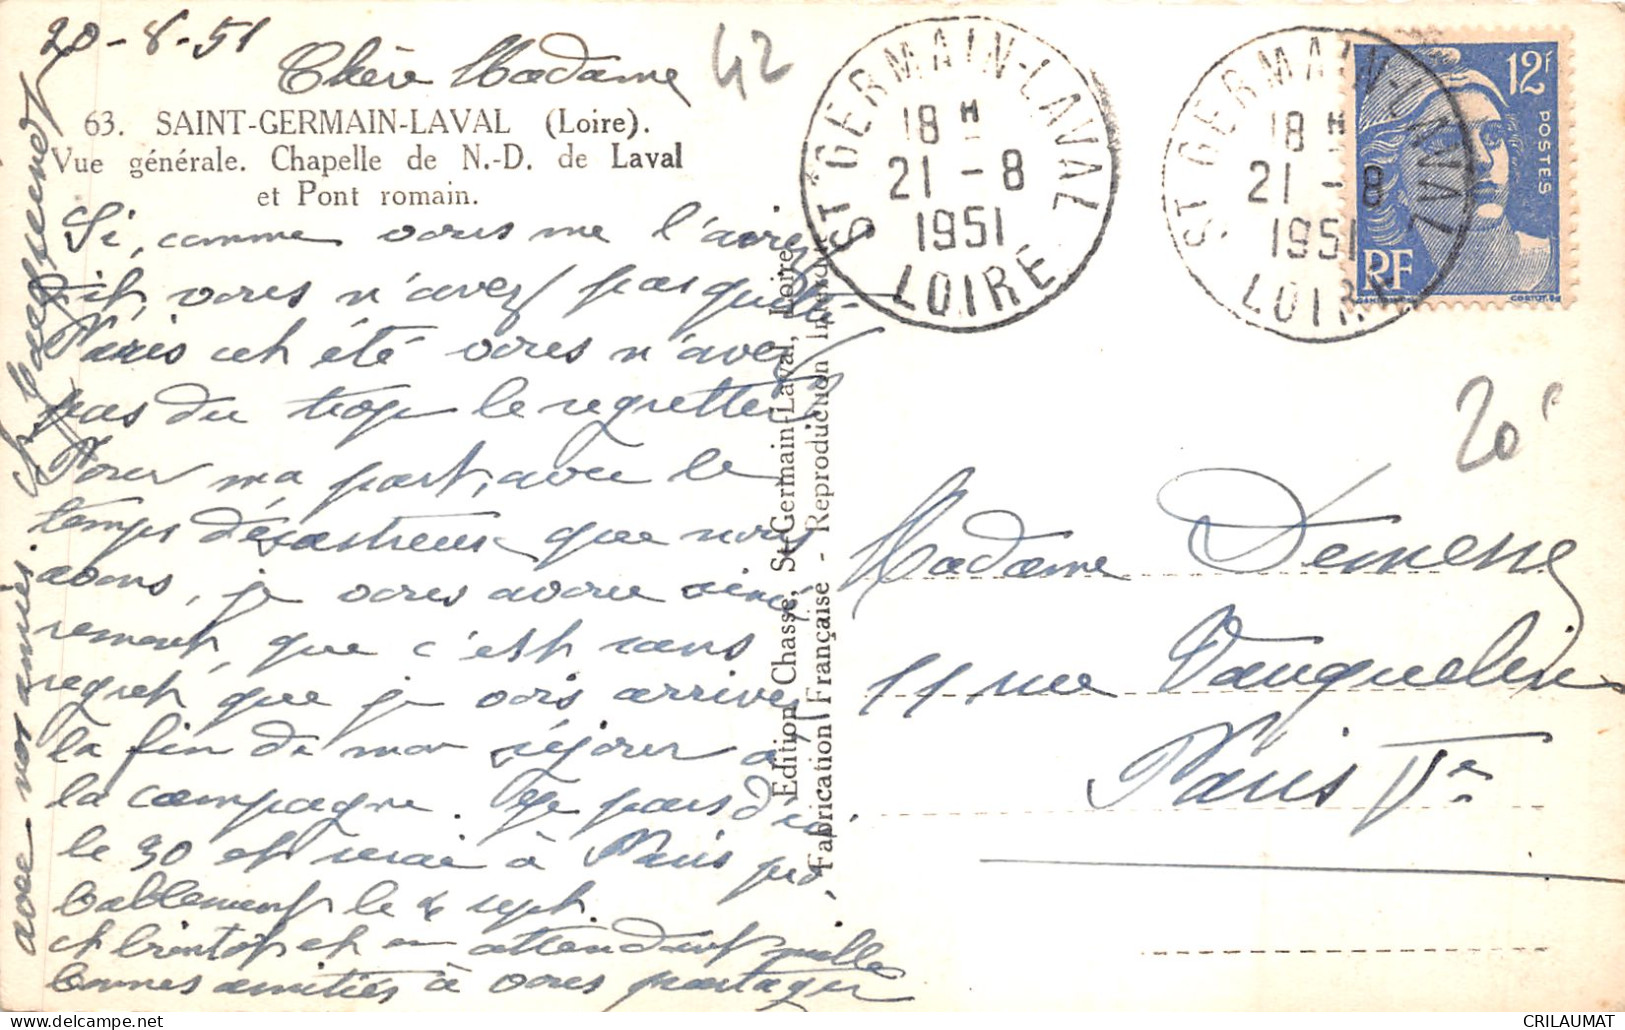 20-8-51
Chère Madame
42
63. SAINT-GERMAIN-LAVAL (Loire).
Vue générale. Chapelle de N.-D. de Laval
et Pont romain.
Si, comme vous me l'aviez
dit, vous n'avez pas quitté
Paris cet été vous n'avez
pas du trop le regretter
Pour ma part, avec le
temps désastreux que nous
avons, je vous avoue sincè
rement, que c'est sans
regret que je vois arriver
la fin de mon séjour à
la campagne. Je pars d'ici
le 30 et serai à Paris pro
bablement le 4 sept.
A bientôt et en attendant mille
bonnes amitiés à vous partager
avec nos amies.
Edition Chasse, St-Germain-Laval, Loire
Fabrication Française - Reproduction interdite
ST GERMAIN-LAVAL
18 H
21 -8
1951
LOIRE
ST GERMAIN-LAVAL
18 H
21 -8
1951
LOIRE
12F
POSTES
RF
GANDON
CORTOT.SC
20F
Madame Demesse
11 rue Vauquelin
Paris Ve
CRILAUMAT